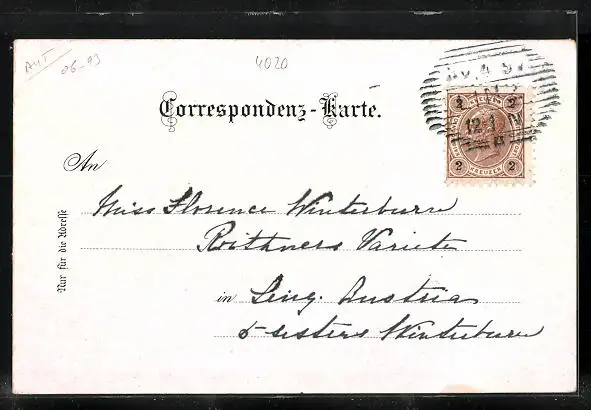 AUT 06-93
4020
2 KREUZER 2
Correspondenz-Karte.
An
Miss Florence Winterburn
Roithners Variete
in Linz. Austria
5 sisters Winterburn
Nur für die Adresse